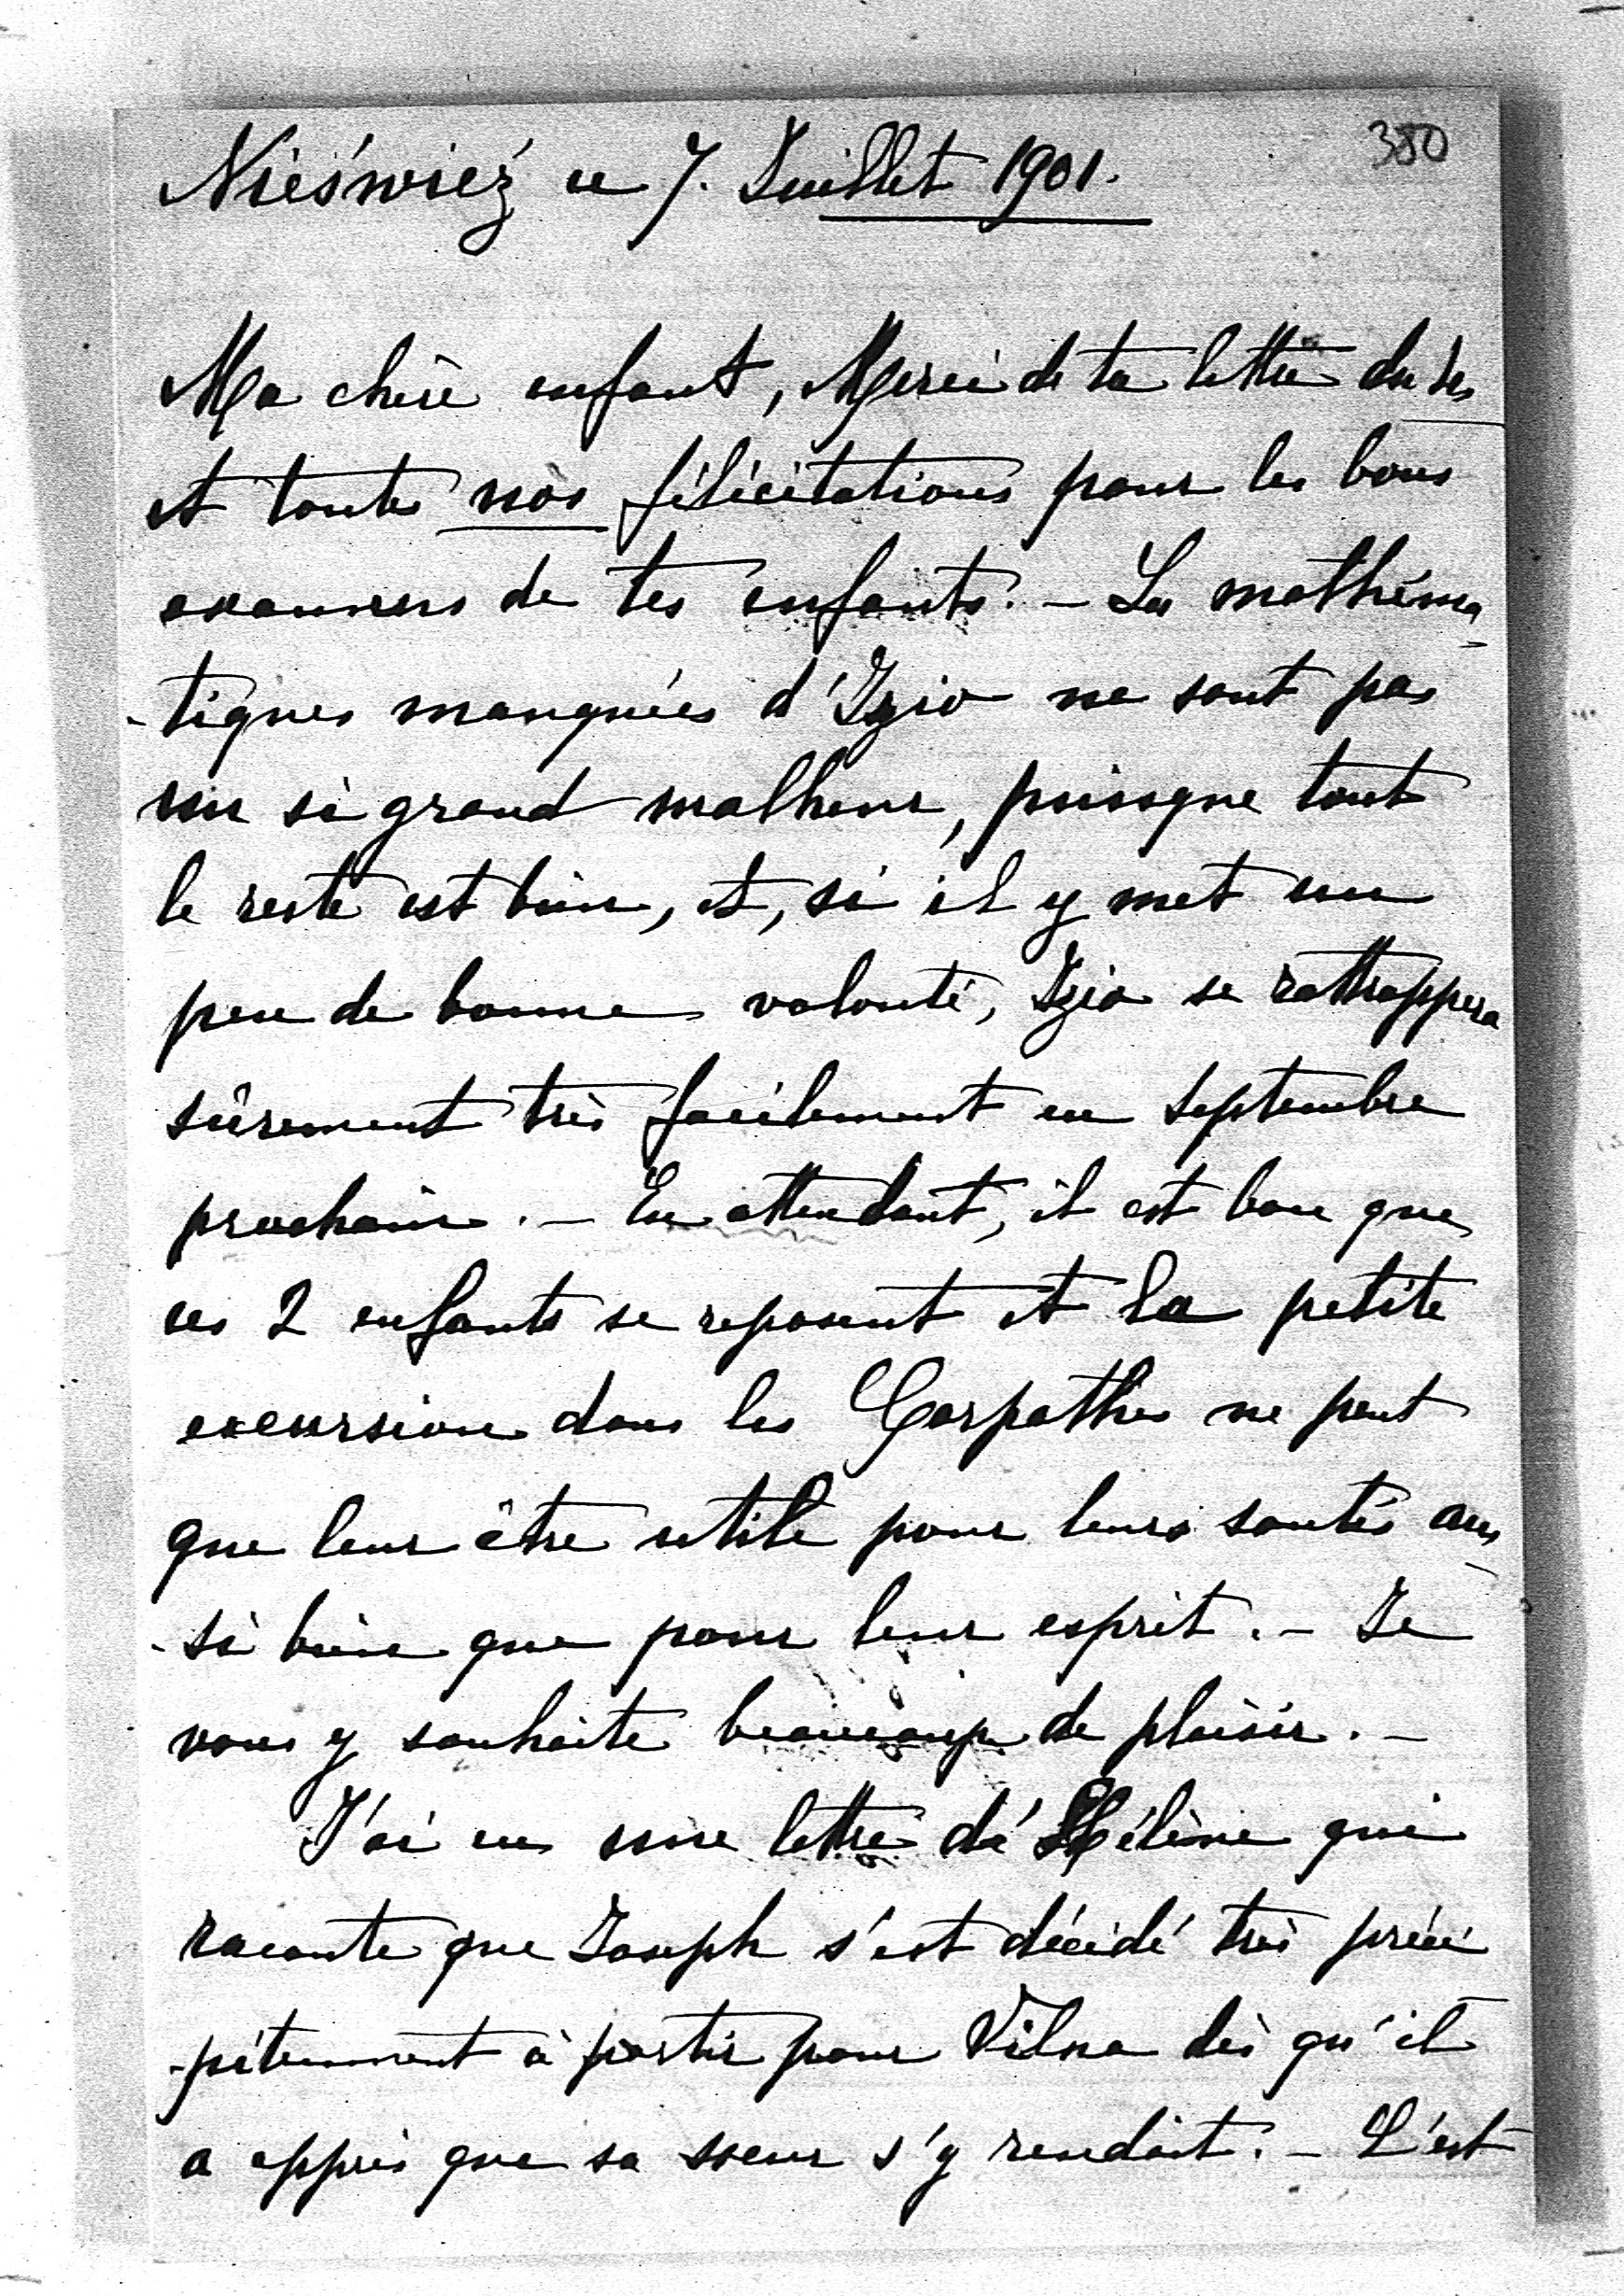 380
Nieśwież ce 7. Juillet 1901.
Ma chère enfant, Merci de ta lettre du
et toutes nos félicitations pour les bons
examens de tes enfants. – Les mathéma-
-tiques manquées d'Izio ne sont pas
un si grand malheur, puisque tout
le reste est bien, et, si il y met un
peu de bonne volonté, Izio se rattrappera
sûrement très facilement en septembre
prochain. – En attendant, il est bon que
ces 2 enfants se reposent et la petite
excursion dans les Carpathes ne peut
que leur être utile pour leurs santés aus-
-si bien que pour leur esprit. – Je
vous y souhaite beaucoup de plaisir. –
J'ai eu une lettre d'Hélène qui
raconte que Joseph s'est décidé très préci
-pitemment à partir pour Vilna dès qu'il
a appris que sa sœur s'y rendait. – C'est